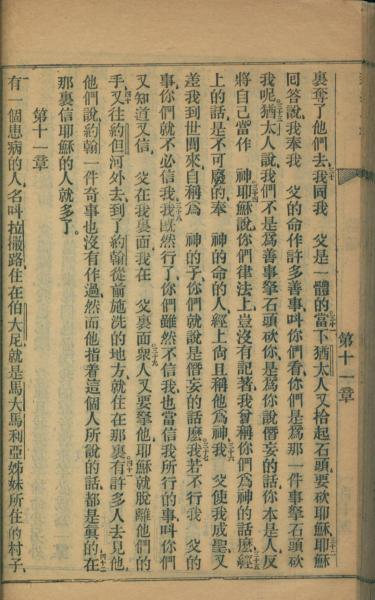 裏奪了他們去、三十我同我　父是一體的、三十一當下猶太人又拾起石頭要砍耶穌、三十二耶穌
回答說、我奉我　父的命作許多善事、叫你們看、你們是爲那一件事拏石頭砍
我呢、三十三猶太人說、我們不是爲善事拏石頭砍你、是爲你說僭妄的話、你本是人、反
將自己當作　神、三十四耶穌說、你們律法上豈沒有記著、我曾稱你們爲神的話麽、三十五經
上的話是不可廢的、奉　神的命的人、經上尙且稱他爲神、三十六我　父使我成聖、又
差我到世間來、自稱爲　神的子、你們就說是僭妄的話麽、三十七我若不行我　父的
事、你們就不必信我、三十八我既然行了、你們雖然不信我、也當信我所行的事、叫你們
又知道又信　父在我裏面、我在　父裏面、三十九衆人又要拏他、耶穌就脫離他們的
手、四十又往約但河外去、到了約翰從前施洗的地方、就住在那裏、四十一有許多人去見他、
他們說、約翰一件奇事也沒有作過、然而他指着這個人所說的話、都是眞的、四十二在
那裏信耶穌的人就多了。
第十一章
有一個患病的人、名叫拉撒路、住在伯大尼、就是馬大馬利亞姊妹所住的村子、
第十一章